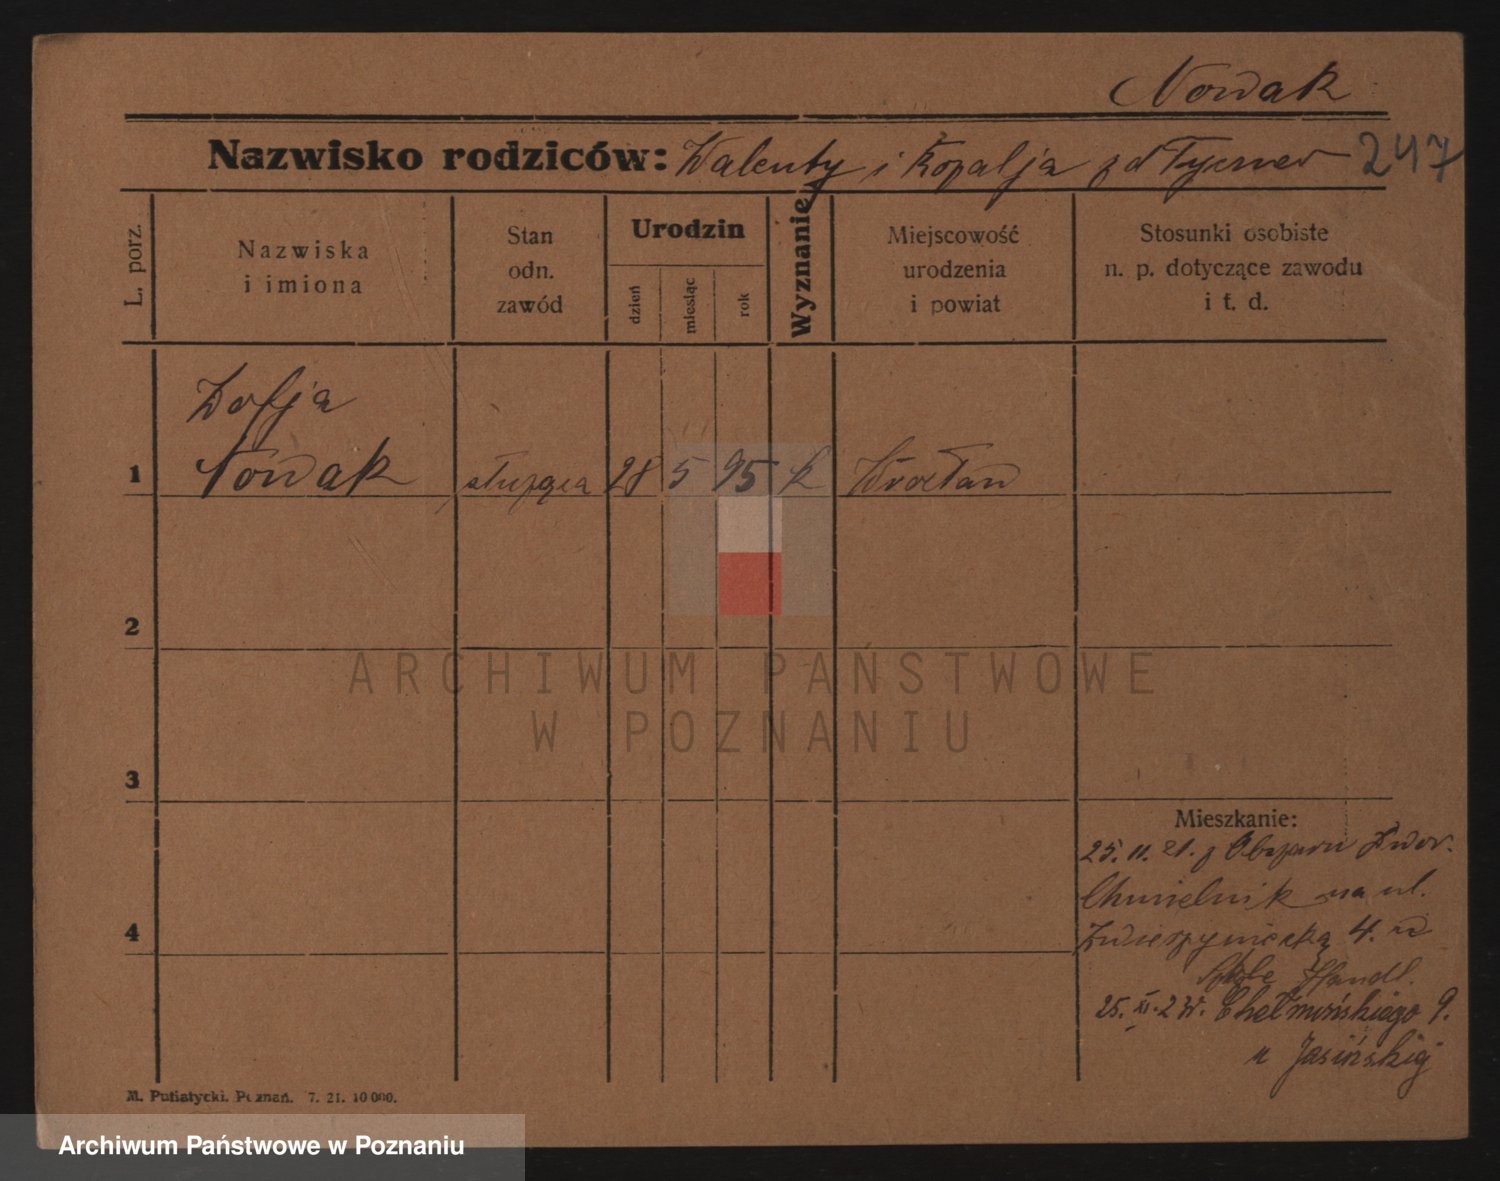 Nowak
Nazwisko rodziców: Walenty i Rozalja zd Tyczner 247
L. porz.
Nazwiska
i imiona
Stan
odn.
zawód
Urodzin
dzień
miesiąc
rok
Wyznanie
Miejscowość
urodzenia
i powiat
Stosunki osobiste
n. p. dotyczące zawodu
i t. d.
Zofja
1 Nowak służąca 28 5 95 k Wrocław
2
ARCHIWUM PAŃSTWOWE
W POZNANIU
3
Mieszkanie:
25. 11. 21. z Obszaru Dwor.
Chmielnik na ul.
4
Zwierzyniecką 4. u
Handl.
25. XI. 23r. Chełmińskiego 9.
u Jasińskiej
M. Putiatycki. Poznań. 7. 21. 10 000.
Archiwum Państwowe w Poznaniu